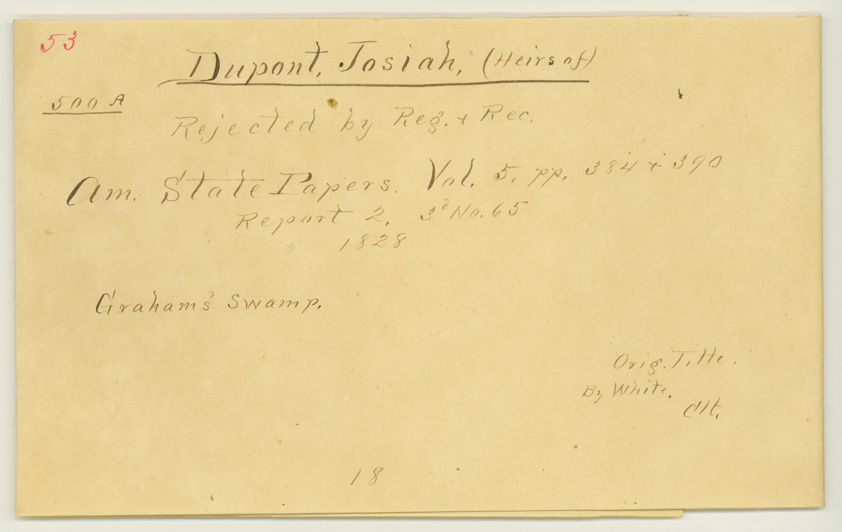 53
Dupont, Josiah, (Heirs of)
500 A
Rejected by Reg. & Rec.
Am. State Papers. Vol. 5. pp. 384 & 390
Report 2. 3d No. 65
1828
Graham's Swamp.
Orig. Title.
By White.
18